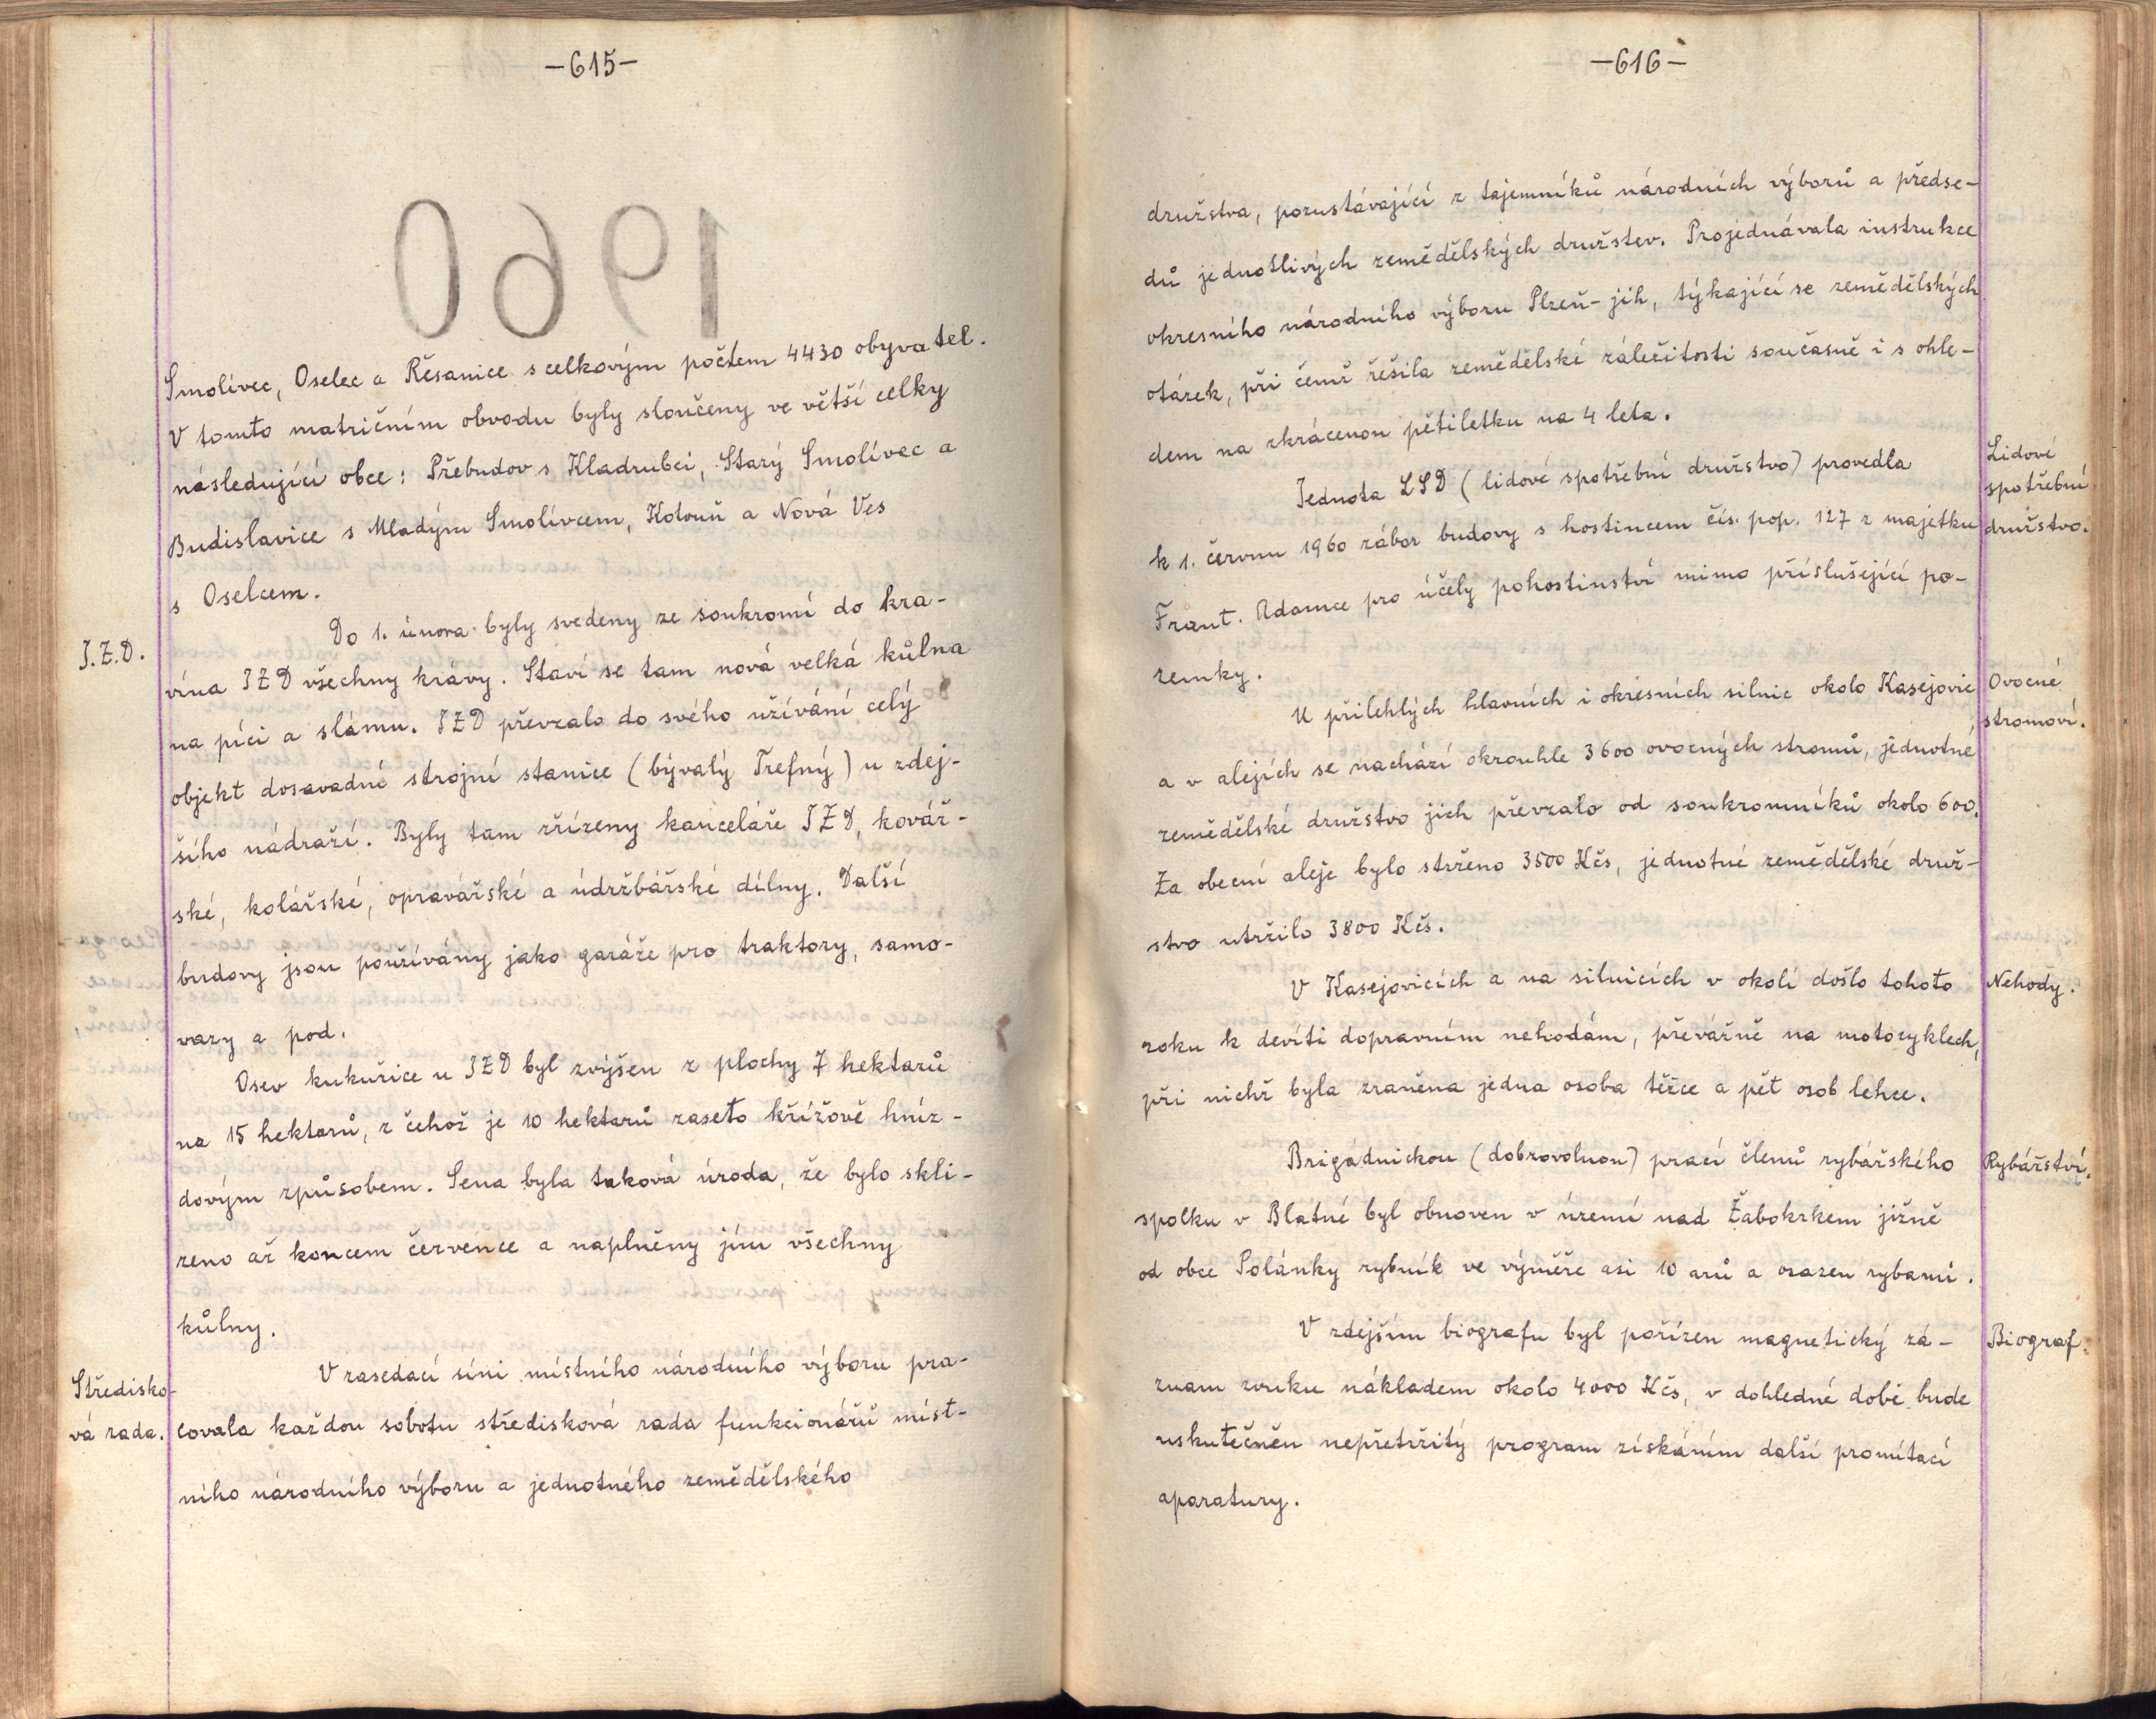 -615-
1960
Smolivec, Oselec a Řesanice s celkovým počtem 4430 obyvatel.
V tomto matričním obvodu byly sloučeny ve větší celky
následující obce: Přebudov s Kladrubcí, Starý Smolívec a
Budislavice s Mladým Smolívcem, Kotouň a Nová Ves
s Oselcem.
J.Z.D.
Do 1. února byly svedeny ze soukromí do kra-
vína JZD všechny krávy. Staví se tam nová velká kůlna
na píci a slámu. JZD převzalo do svého užívání celý
objekt dosavadné strojní stanice (bývalý Trefný) u zdej-
šího nádraží. Byly tam zřízeny kanceláře JZD, kovář-
ské, kolářské, opravářské a údržbářské dílny. Další
budovy jsou používány jako garáže pro traktory, samo-
vazy a pod.
Osev kukuřice u JZD byl zvýšen z plochy 7 hektarů
na 15 hektarů, z čehož je 10 hektarů zaseto křížově hníz-
dovým způsobem. Sena byla taková úroda, že bylo skli-
zeno až koncem července a naplněny jím všechny
kůlny.
Středisko-
vá rada.
V zasedací síni místního národního výboru pra-
covala každou sobotu středisková rada funkcionářů míst-
ního národního výboru a jednotného zemědělského
-616-
družstva, pozustávající z tajemníků národních výborů a předse-
dů jednotlivých zemědělských družstev. Projednávala instrukce
okresního národního výboru Plzeň-jih, týkající se zemědělských
otázek, při čemž řešila zemědělské záležitosti současně i s ohle-
dem na zkrácenou pětiletku na 4 leta.
Lidové
spotřební
družstvo.
Jednota LSD (lidové spotřební družstvo) provedla
k 1. červnu 1960 zábor budovy s hostincem čís. pop. 127 z majetku
Frant. Adamce pro účely pohostinství mimo příslušející po-
zemky.
Ovocné
stromoví.
U přilehlých hlavních i okresních silnic okolo Kasejovic
a v alejích se nachází okrouhle 3600 ovocných stromů, jednotné
zemědělské družstvo jich převzalo od soukromníků okolo 600.
Za obecní aleje bylo strženo 3500 Kčs, jednotné zemědělské druž-
stvo utržilo 3800 Kčs.
Nehody.
V Kasejovicích a na silnicích v okolí došlo tohoto
roku k devíti dopravním nehodám, převážně na motocyklech,
při nichž byla zraněna jedna osoba těžce a pět osob lehce.
Rybářství.
Brigádnickou (dobrovolnou) prací členů rybářského
spolku v Blatné byl obnoven v území nad Žabokrkem jižně
od obce Polánky rybník ve výměře asi 10 arů a osazen rybami.
Biograf.
V zdejším biografu byl pořízen magnetický zá-
znam zvuku nákladem okolo 4000 Kčs, v dohledné době bude
uskutečněn nepřetržitý program získáním další promítací
aparatury.